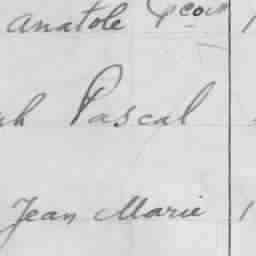 Anatole
Pascal
Jean Marie